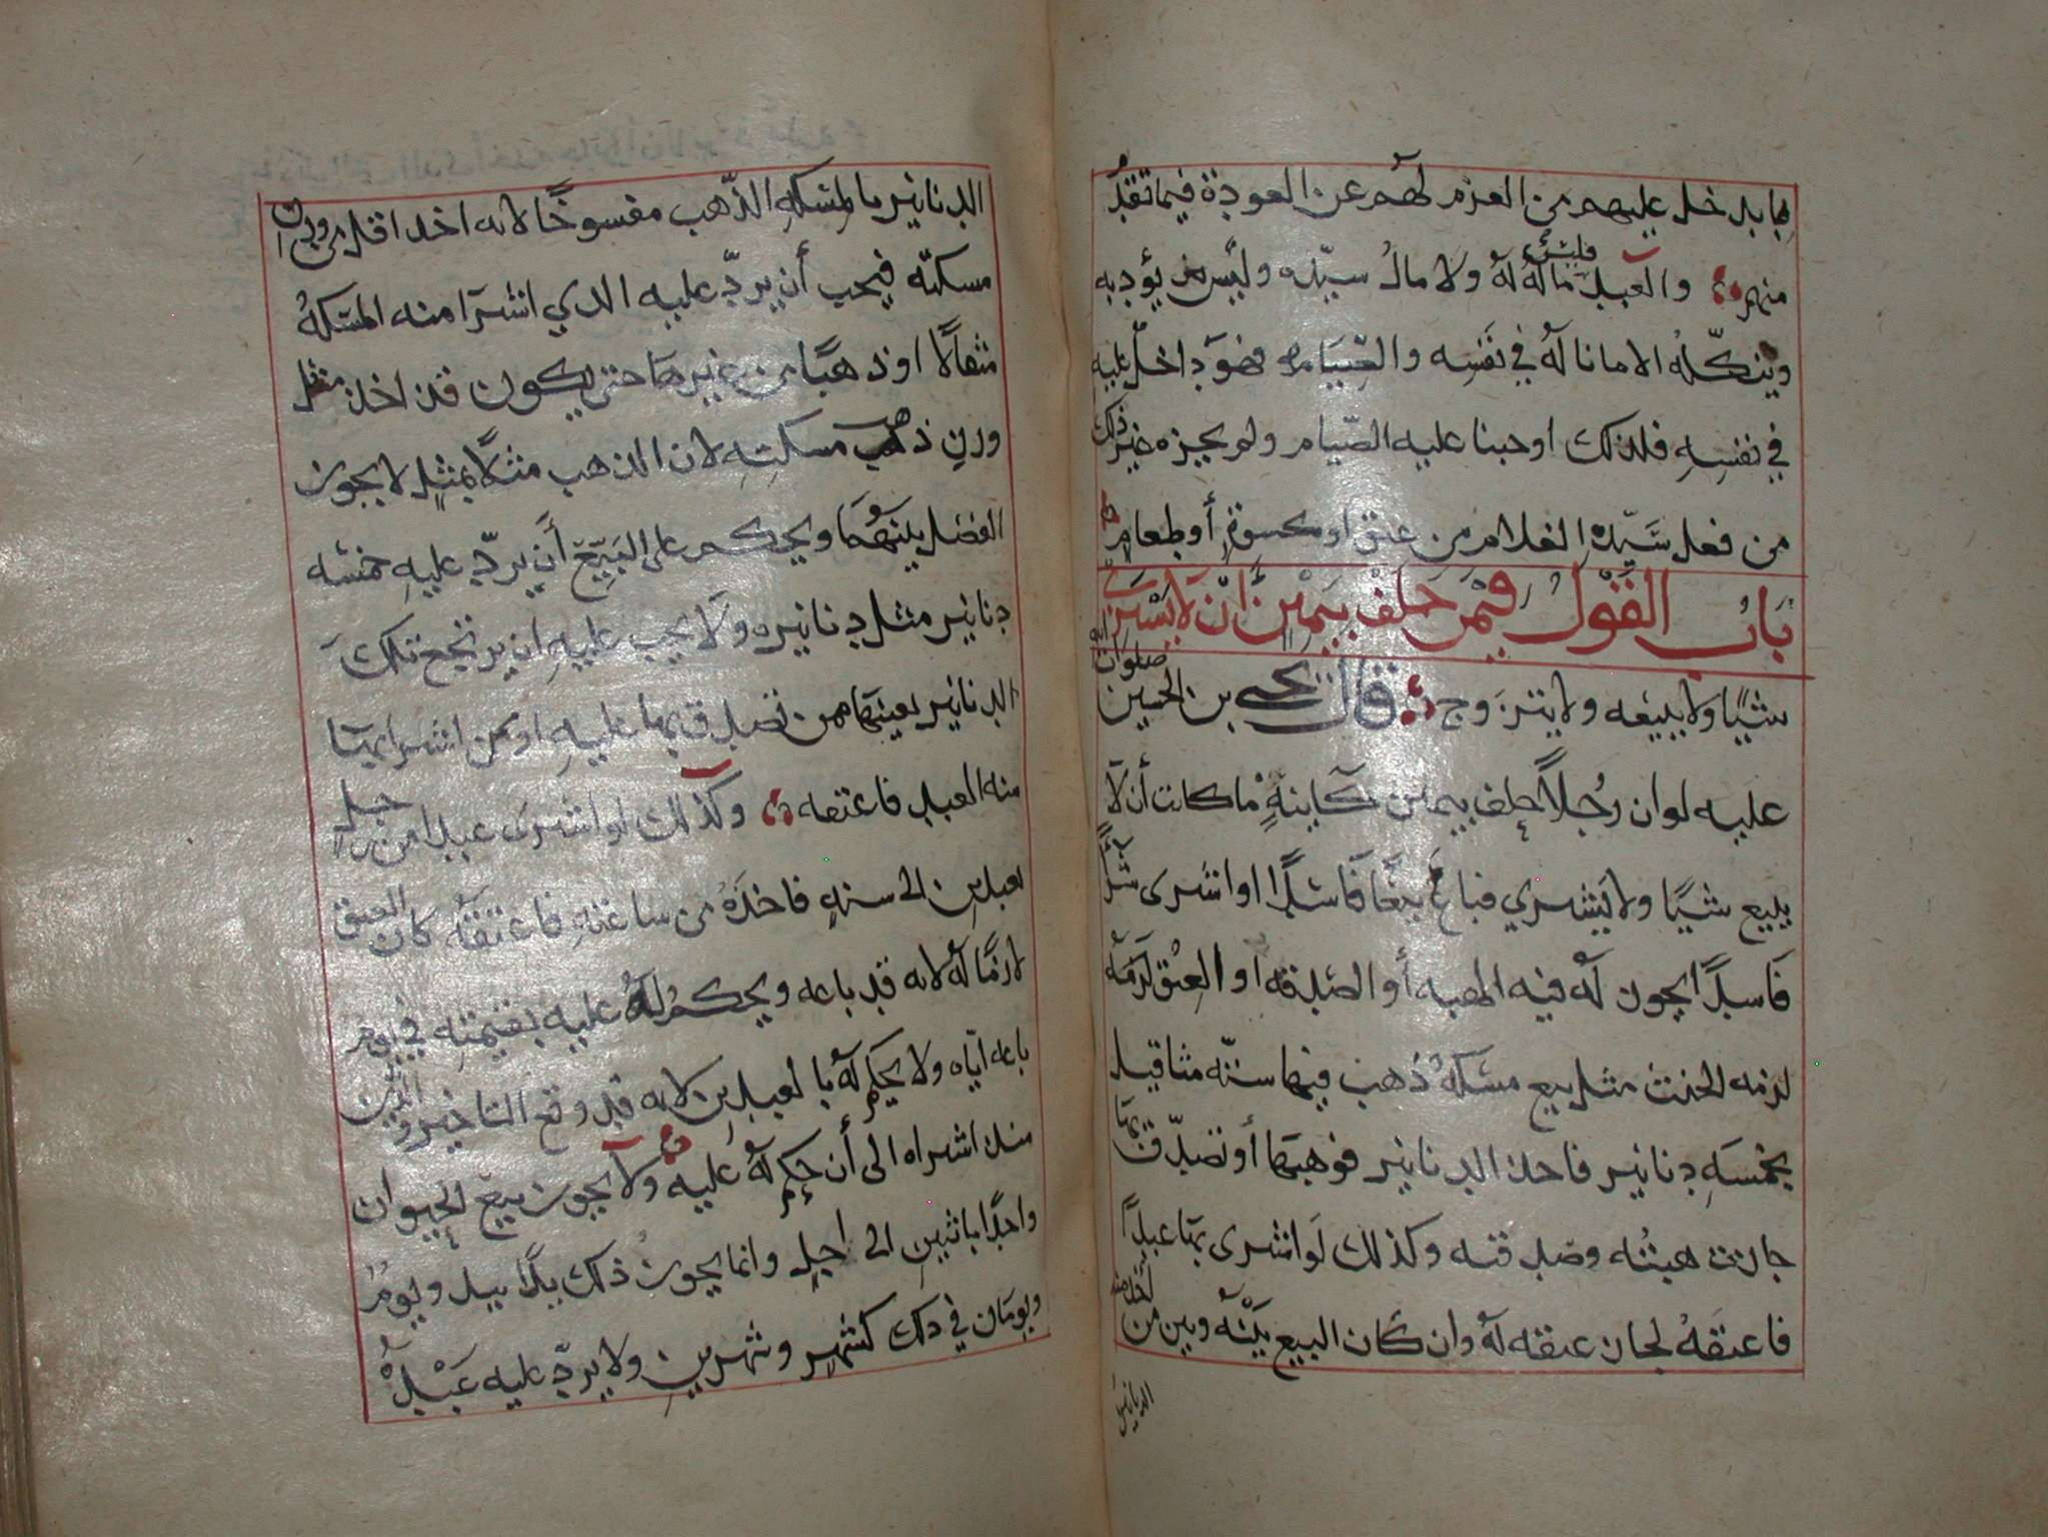 بما يدخل عليهم من العزم لهم عن العودة فيما تقدم
منهم والعبد فليس ماله له ولا مال سيده وليس من يؤدبه
وينكله الا ما ناله في نفسه والصيام فهو داخل عليه
في نفسه فلذلك اوجبنا عليه الصيام ولم يجزه غير ذلك
من فعل سيده الغلام من عتق او كسوة أو طعام
باب القول فيمن حلف بيمين أن لا يشتري
شيئا ولا يبيعه ولا يتزوج قال يحيى بن الحسين صلوات الله
عليه لو ان رجلا حلف بيمين كاينة ما كانت أن لا
يبيع شيئا ولا يشتري فباع بيعا فاسدا او اشترى شرا
فاسدا يجوز له فيه الهبه أو الصدقه او العتق لزمه
لزمه الحنث مثل بيع مسكة ذهب فيها ستة مثاقيل
بخمسة دنانير فاخذ الدنانير فوهبها أو تصدق بها
جازت هبته وصدقته وكذلك لو اشترى بها عبدا
فاعتقه لجاز عتقه له وان كان البيع بينه وبين من اخذ منه
الدنانير
الدنانير بالمسكه الذهب مفسوخا لانه اخذ اقل من وزن
مسكته فيجب أن يرد عليه الذي اشترا منه المسكة
مثقالا او ذهبا من غيرها حتى يكون قد اخذ مثل
وزن ذهب مسكته لان الذهب مثلا بمثل لا يجوز
الفضل بينهما ويحكم على البيع أن يرد عليه خمسه
دنانير مثل دنانيره ولا يجب عليه ان يرتجع تلك
الدنانير بعينها ممن تصدق بها عليه او من اشترا بها
منه العبد فاعتقه وكذلك لو اشترى عبدا من رجل
بعبدين الى سنه فاخذه من ساعته فاعتقه كان العتق
لازما له لانه قد باعه ويحكم له عليه بقيمته في يوم
باعه اياه ولا يحكم له بالعبدين لانه قد وقع التاخير والدين
منذ اشتراه الى أن حكم له عليه ولا يجوز بيع الحيوان
واحدا باثنين الى اجل وانما يجوز ذلك يدا بيد ويوم
ويومان في ذلك كشهر وشهرين ولا يرد عليه عبده